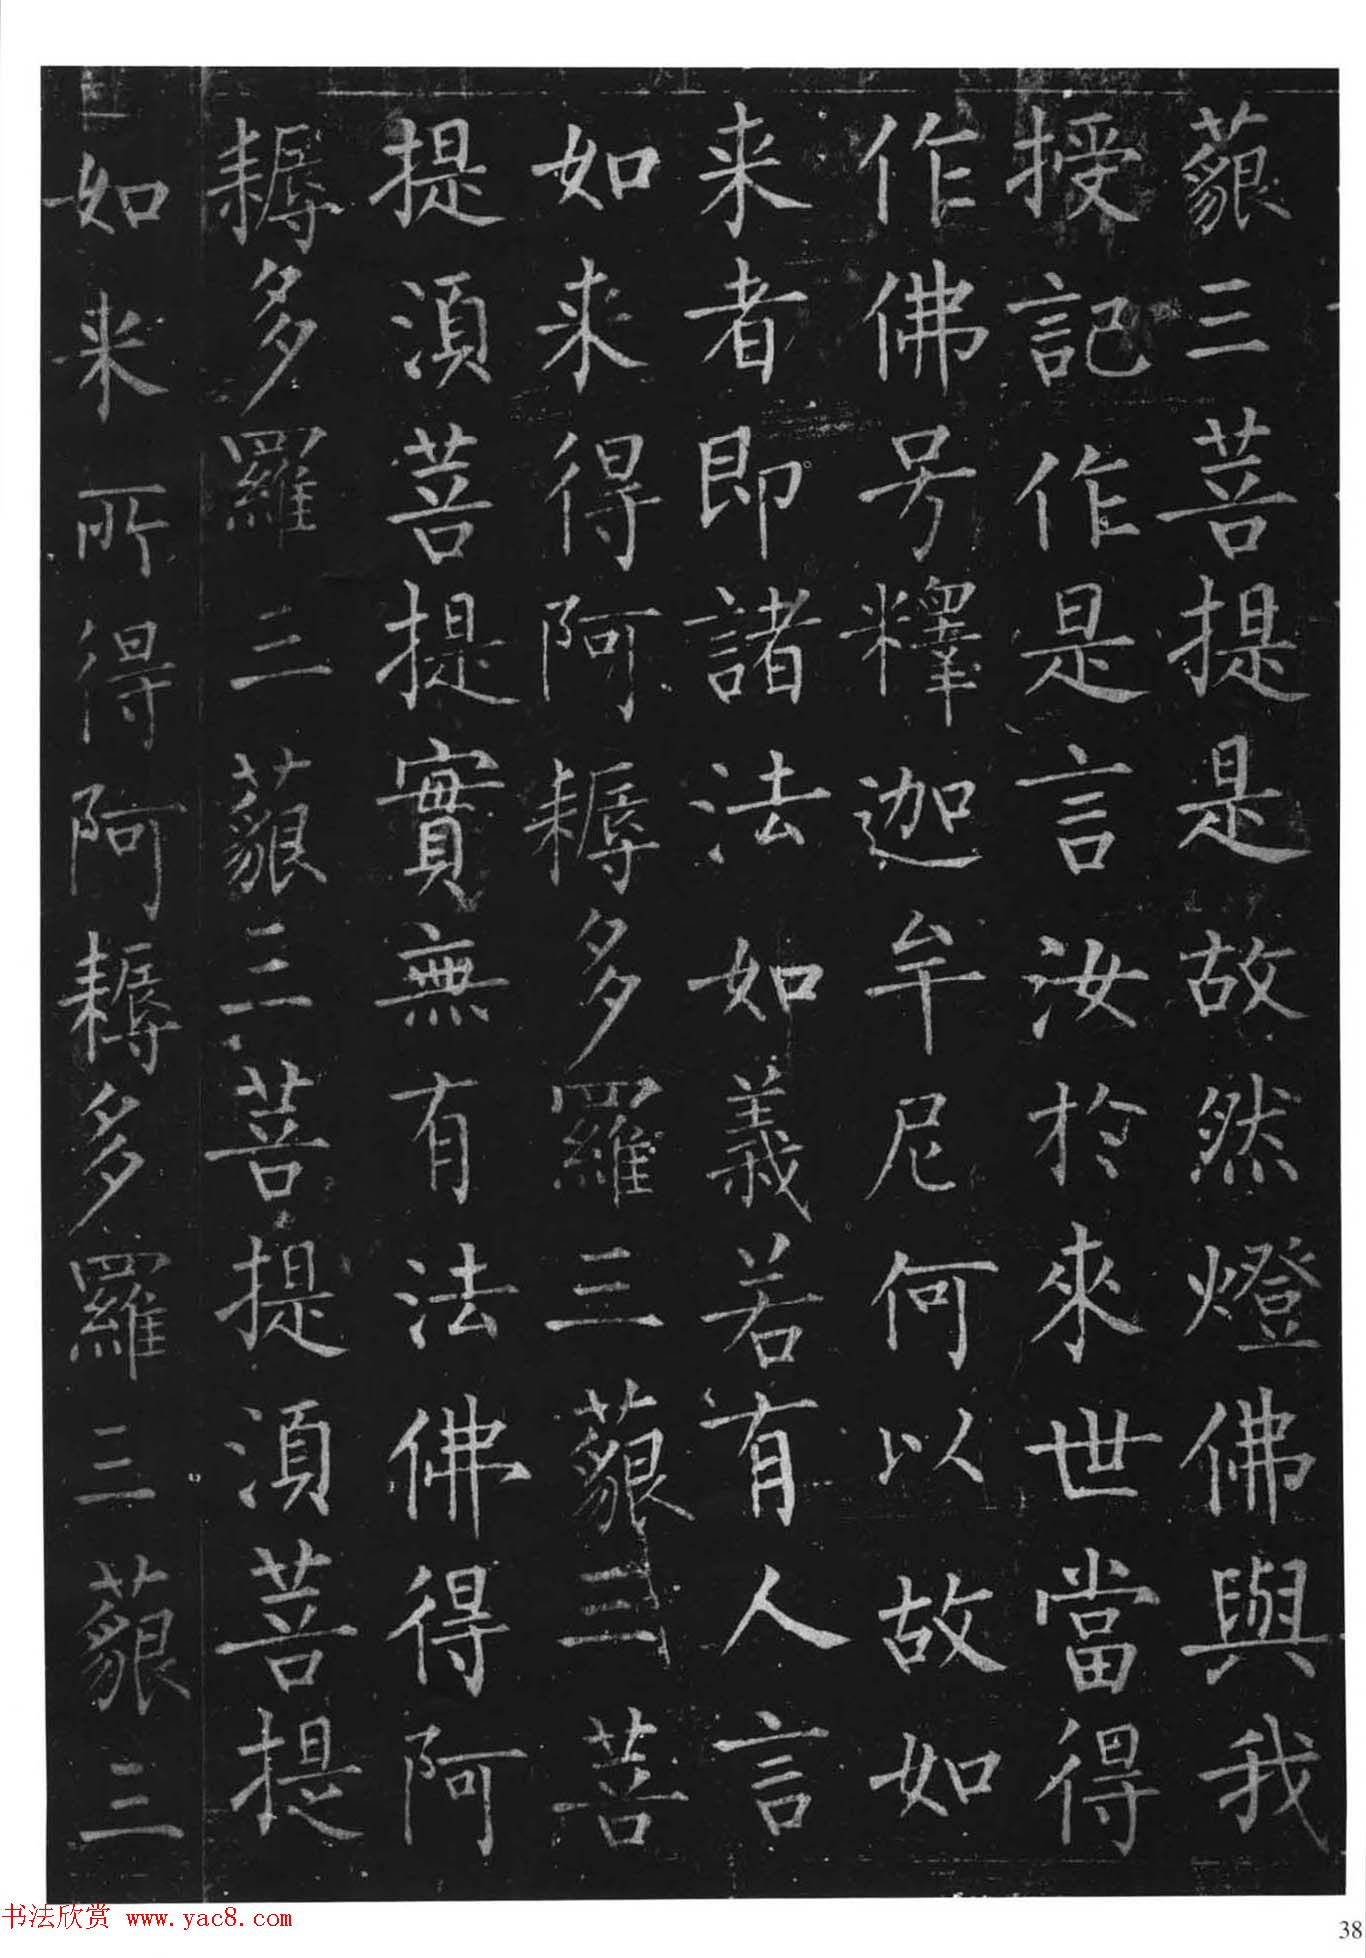 藐三菩提是故然燈佛與我
授記作是言汝於來世當得
作佛号釋迦牟尼何以故如
来者即諸法如義若有人言
如来得阿耨多羅三藐三菩
提湏菩提實無有法佛得阿
耨多羅三藐三菩提湏菩提
如来所得阿耨多羅三藐三
书法欣赏 www.yac8.com
38